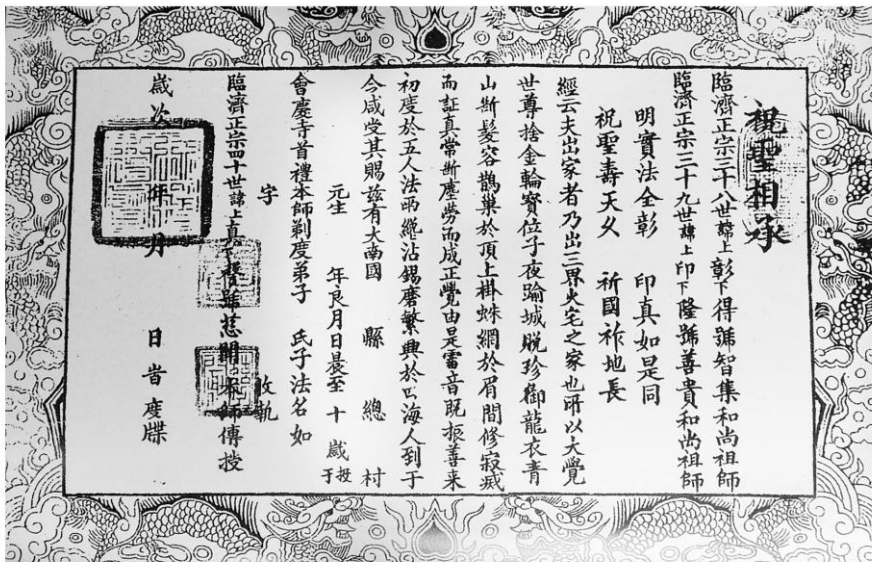 祝聖相承
臨濟正宗三十八世諱上彰下得號智集和尚祖師
臨濟正宗三十九世諱上印下隆號善貴和尚祖師
明實法全彰 印真如是同
祝聖壽天久 祈國祚地長
經云夫出家者乃出三界火宅之家也所以大覺
世尊捨金輪寶位子夜踰城脱珍御龍衣青
山斷髮容鵲巢於頂上掛蛛網於眉間修寂滅
而証真常斷塵勞而成正覺由是雷音既振善来
初度於五人法雨纔沾錫磨繁興於四海人到于
今咸受其賜兹有大南國 縣 總 村
元生 年良月日晨至 十 歲 投于
會慶寺首禮本師剃度弟子 氏子法名如
字 收執
臨濟正宗四十世諱上真下 號慈開 師傳授
歲次 年 月 日 度牒